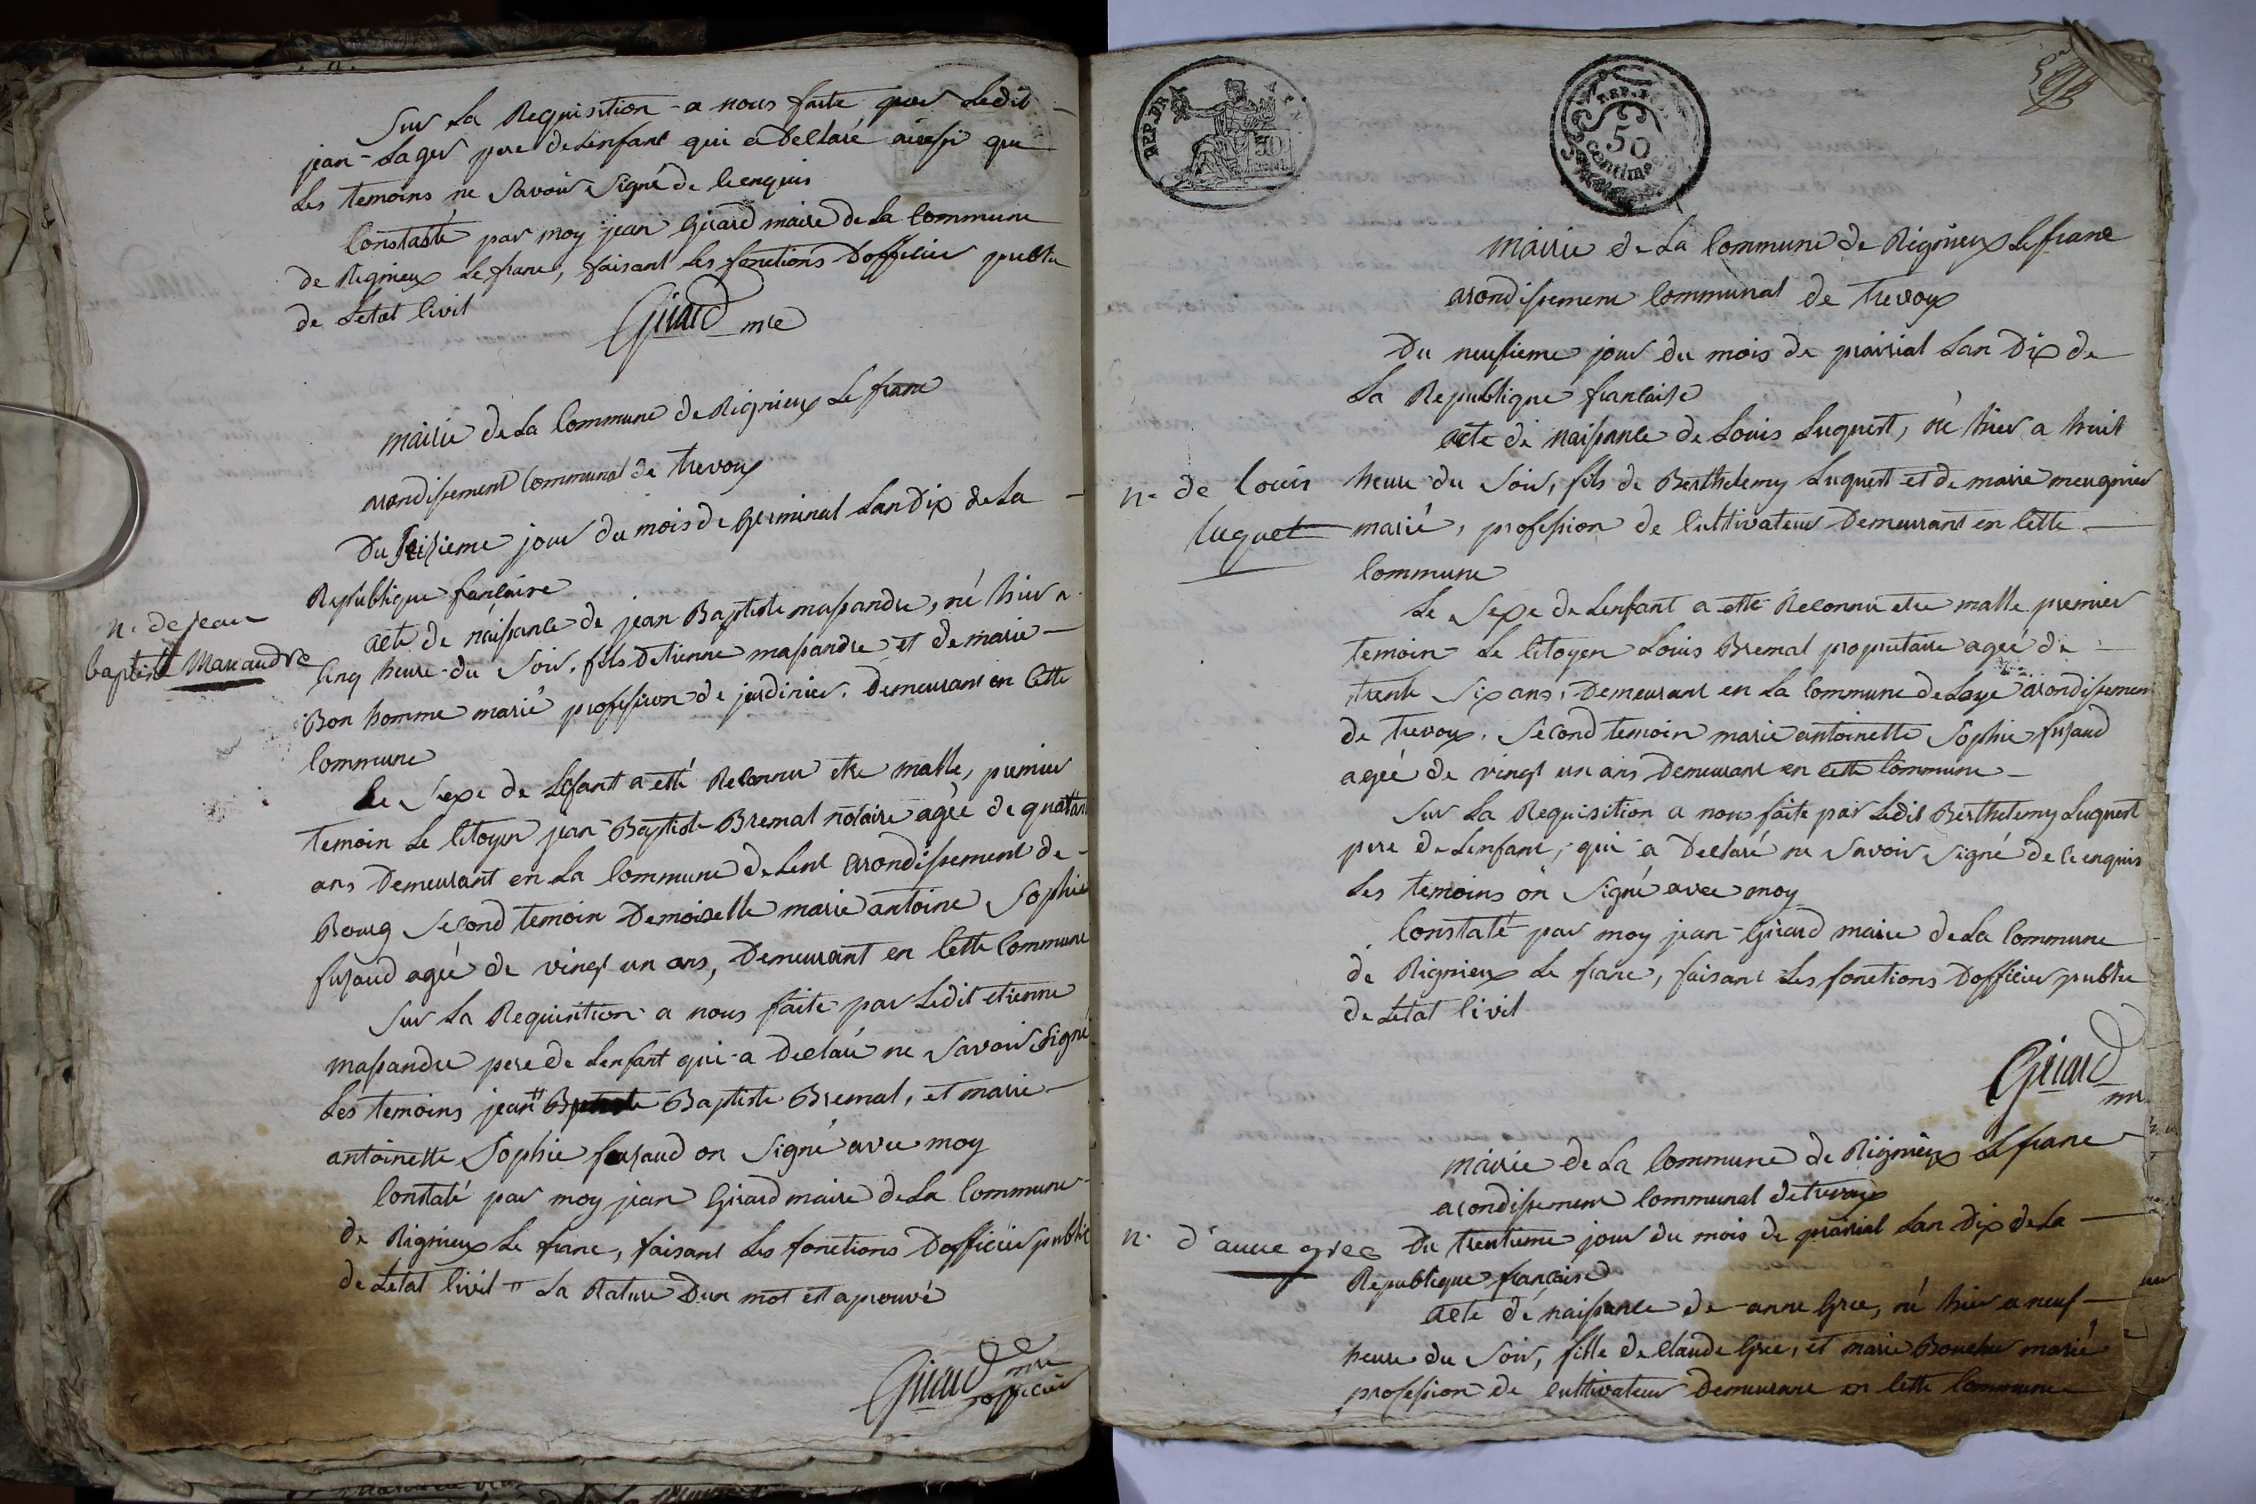 Sur La Requisition a nous faite par Ledit
jean Lager pere de Lenfant qui a Declaré ainsi que
Les temoins ne Savoir Signé de Ce enquis
Constaté par moy jean Girard maire de La Commune
de Rignieux Le franc, faisant Les fonctions Dofficier public
de Letat Civil
Girard mre
mairie de La Commune de Rignieux Le franc
arondissement Communal de trevoux
Du seizieme jour du mois de Germinal Lan Dix de La
Republique
n. de jean
baptiste Massandre
acte de naissance de jean Baptiste massandre, né hier a
Cinq heure du Soir, fils Detienne massandre et de marie
Bon homme marié profession de jardinier, Demeurant en Cette
Commune
Le Sexe de Lefant a etté Reconnu etre malle, premier
temoin Le Citoyen jean Baptiste Bremal notaire agée de
ans Demeurant en La Commune de Lent arondissement de
Bourg Second temoin Demoiselle marie antoine Sophie
fusaud agée de vingt un ans, Demeurant en Cette Commune
Sur La Requisition a nous faite par Ledit etienne
massandre pere de Lenfant qui a Declaré ne Savoir Signé
Les temoins jean Baptiste Bremal, et marie
antoinette Sophie fusaud on Signé avec moy
Constaté par moy jean Girard maire de La Commune
de Rignieux Le franc, faisant Les fonctions Dofficier public
de Letat Civil " La Rature Dun mot est aprouvé
Girard mre
officier
REP. FRA
50
CENT.
REP. FRA
50
centimes
mairie de La Commune de Rignieux Le franc
arondissement Communal de trevoux
Du neufieme jour du mois de prairial Lan Dix de
La Republique francaise
acte de naissance de Louis Luquest, né hier a huit
n. de louis
luquet
heure du Soir, fils de Berthelemy Luquest et de marie meugnier
marié, profession de Cultivateur Demeurant en Cette
Commune
Le Sexe de Lenfant a etté Reconnu etre malle premier
temoin Le Citoyen Louis Bremal proprietaire agée de
trente Six ans, Demeurant en La Commune de arondissement
de trevoux, Second temoin marie antoinette Sophie fusaud
agée de vingt un ans Demeurant en Cette Commune
Sur La Requisition a nous faite par Ledit Berthelemy Luquest
pere de Lenfant, qui a Declaré ne Savoir Signé de Ce enquis
Les temoins on Signé avec moy
Constaté par moy jean Girard maire de La Commune
de Rignieux Le franc, faisant Les fonctions Dofficier public
de Letat Civil
Girard
mre
mairie de La Commune de Rignieux Le franc
arondissement Communal de trevoux
n. d'anne gree
Du trentieme jour du mois de prairial Lan Dix de La
Republique francaise
acte de naissance de anne Gree, né hier a neuf
heure du Soir, fille de Claude Gree, et marie marié
profession de Cultivateur Demeurant en Cette Commune